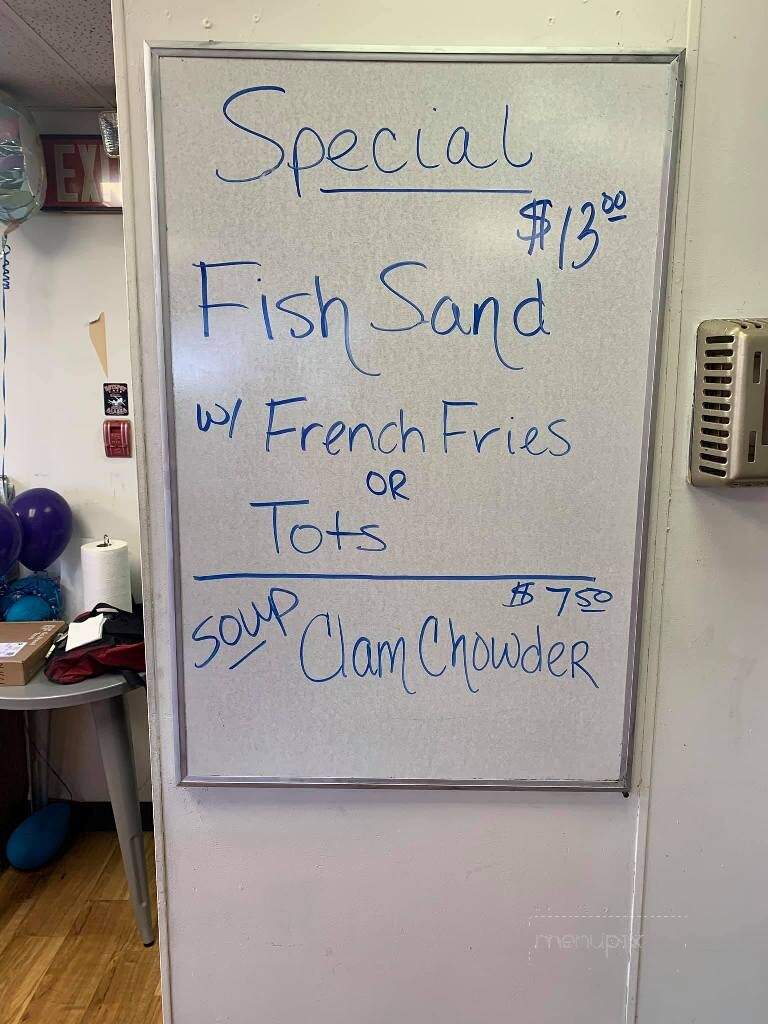 EXI
Special
$13.00
Fish Sand
w/ French Fries
OR
Tots
$7.50
Soup Clam Chowder
menupix